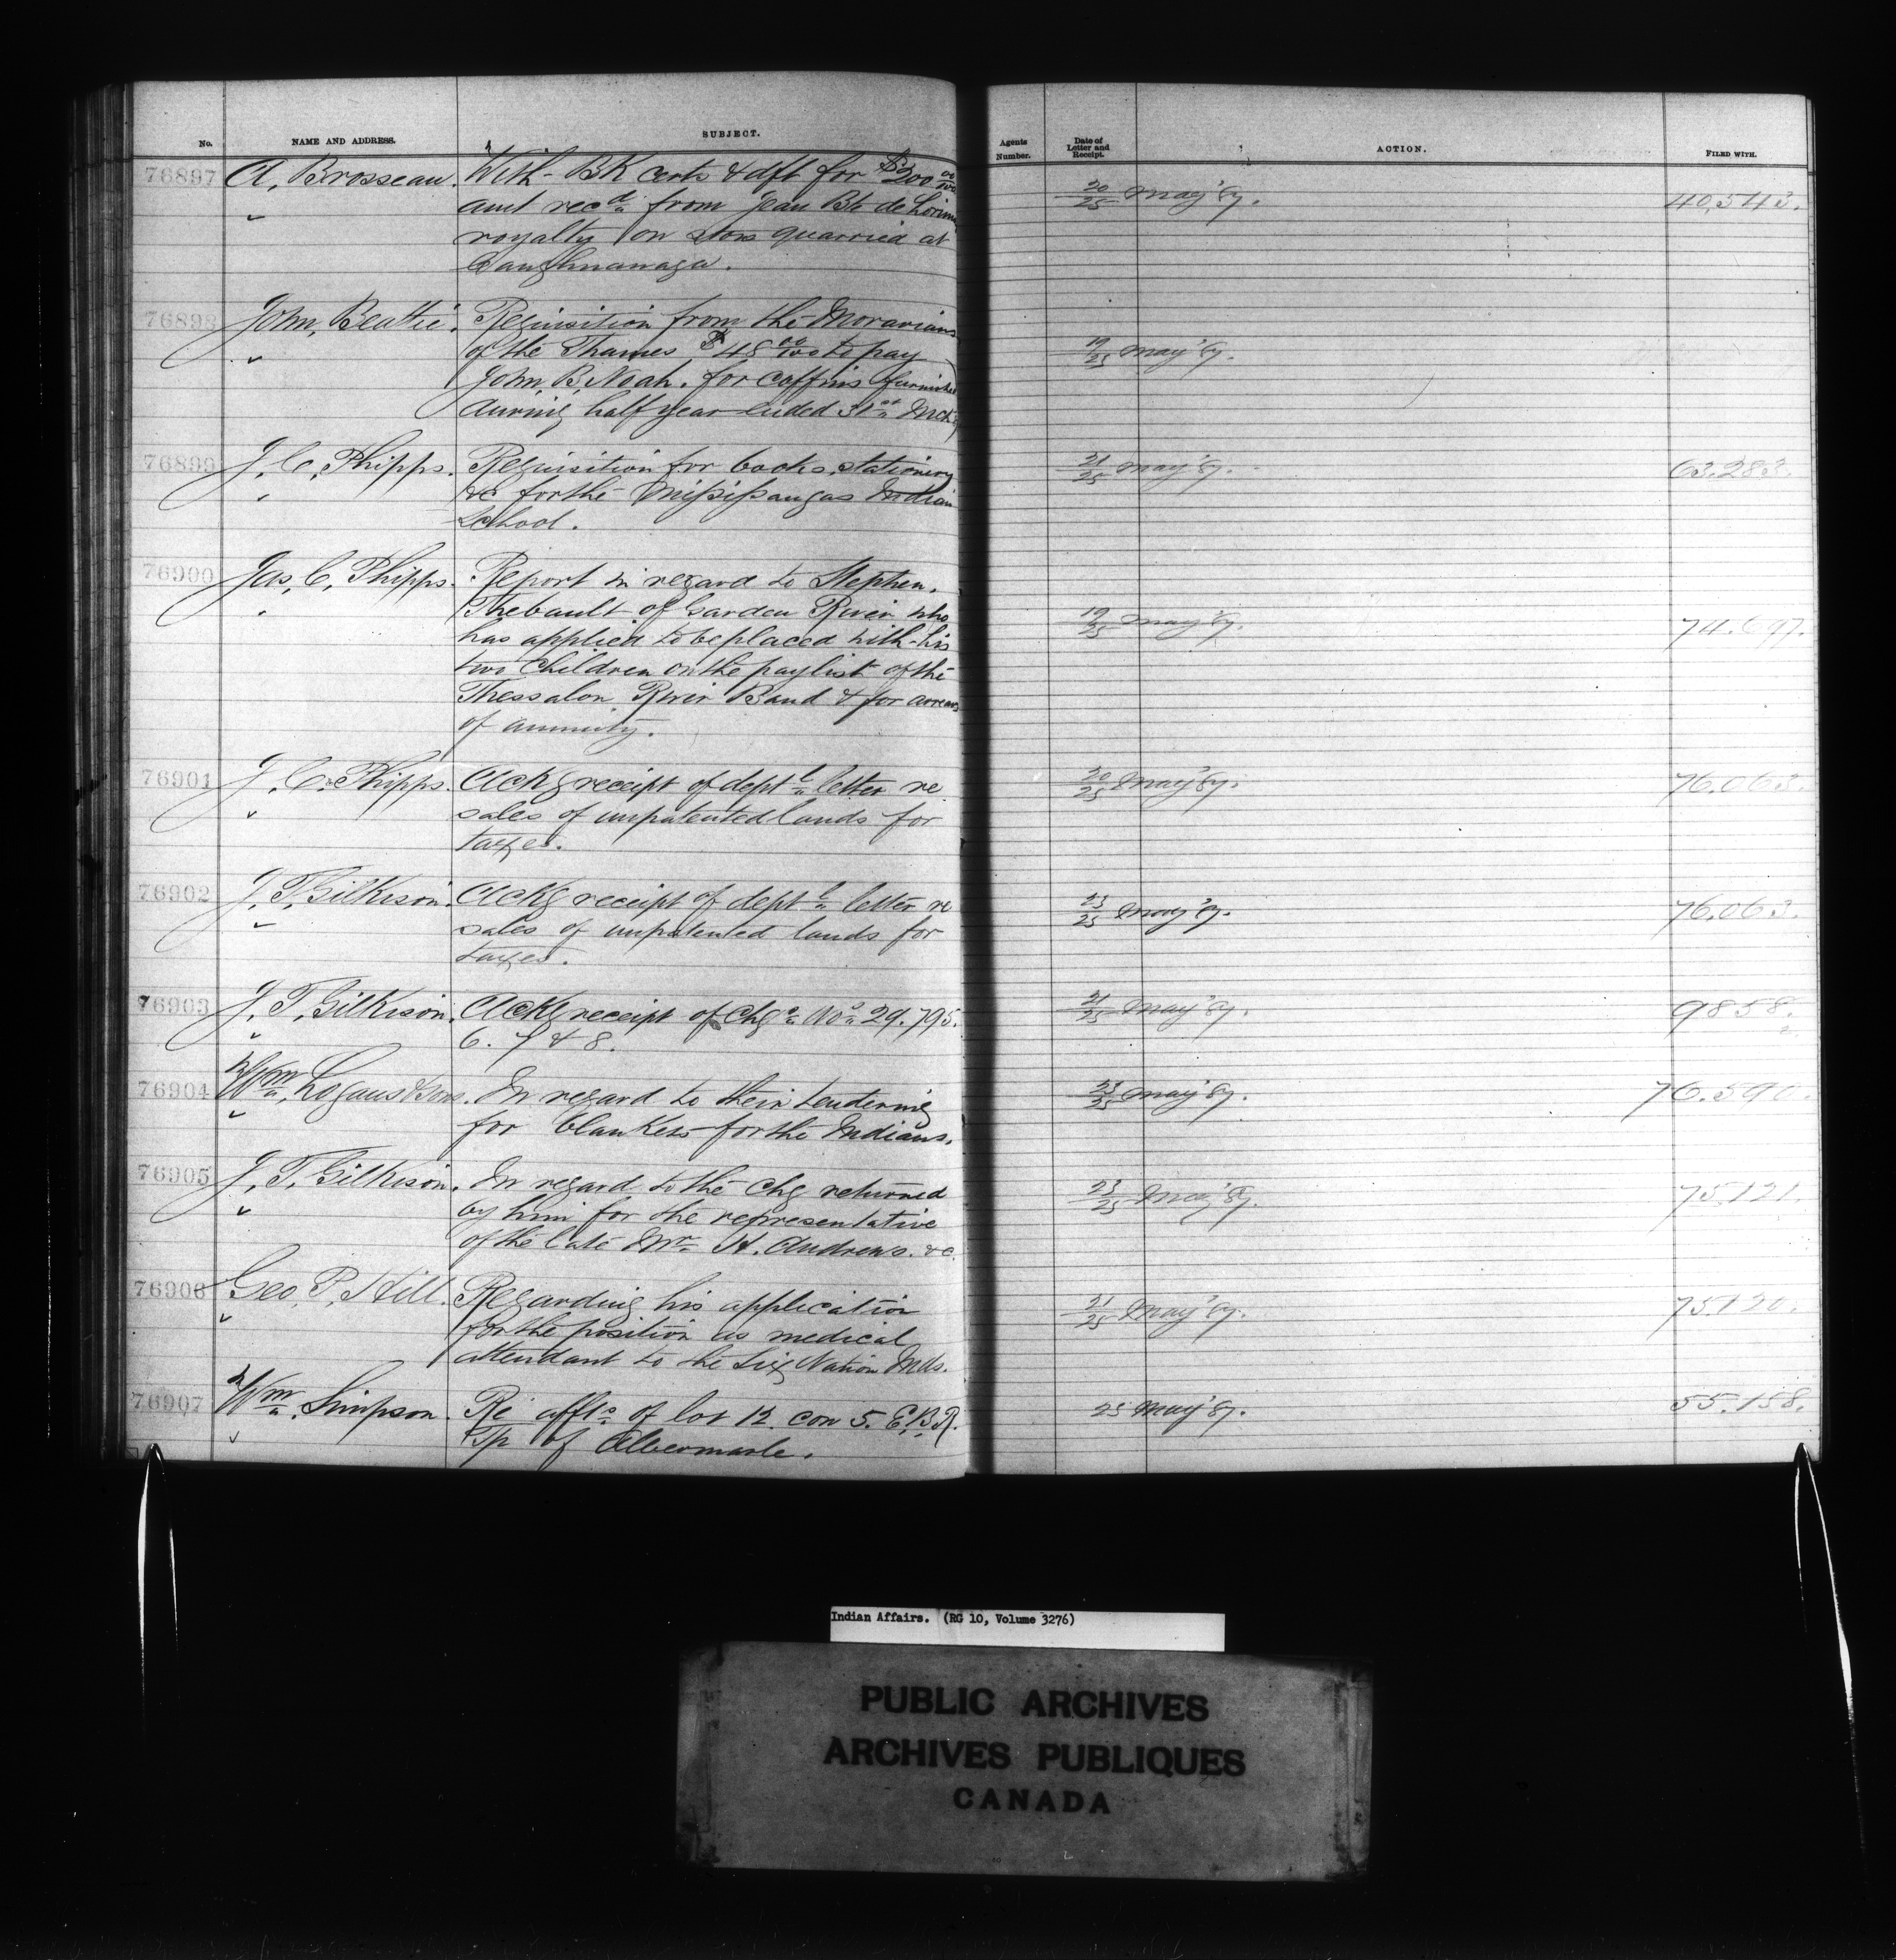 No. NAME AND ADDRESS. SUBJECT. Agents Number. Date of Letter and Receipt. ACTION. FILED WITH.
76897 A. Brosseau. With BK certs & dft for $200 00/100 20/25 May '87. 40,543.
amt recd from Jean Bte de Lorim
royalty on stone quarried at
Caughnawaga.
76898 John, Beattie. Requisition from the Moravians
of the Thames $48 00/100 to pay 19/25 May '87.
John, B, Noah. for coffins furnished
during half year ended 31st Mch
76899 J. C. Phipps. Requisition for books, stationery 21/25 May '87. 63.283.
&c for the Missisaugas Indian
School.
76900 Jas, C, Phipps. Report in regard to Stephen,
Thebault of Garden River who 19/25 May '87. 74.697.
has applied to be placed with his
two children on the paylist of the
Thessalon River Band & for arrears
of annuity.
76901 J. C. Phipps. Ackg receipt of deptl letter re 20/25 May '87. 76.063.
sales of unpatented lands for
taxes.
76902 J. T. Gilkison. Ackg receipt of deptl letter re 23/25 May '87. 76.063.
sales of unpatented lands for
taxes.
76903 J, T, Gilkison. Ackg receipt of Chqs Nos 29.795. 21/25 May '87. 9858.
6. 7 & 8. 2.
76904 Wm, Logans & Sons. In regard to their tendering 23/25 May '87. 76.590.
for blankets for the Indians.
76905 J, T, Gilkison. In regard to the chq returned 23/25 May '87. 75.121.
by him for the representative
of the late Mr H. Andrews. &c.
76906 Geo, P, Hill. Regarding his application 21/25 May '87. 75.120.
for the position as medical
attendant to the Six Nation Inds.
76907 Wm, Simpson. Re affts of lot 12 con 5. E,B,R. 25 May '87. 55.158.
Tp of Albermarle.
Indian Affairs. (RG 10, Volume 3276)
PUBLIC ARCHIVES
ARCHIVES PUBLIQUES
CANADA